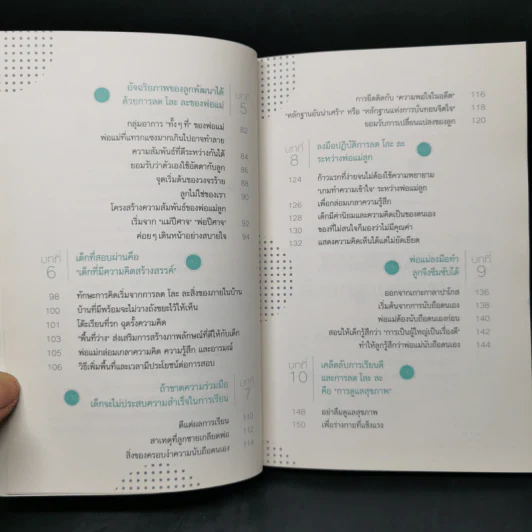 บทที่
5
อัจฉริยภาพของลูกพัฒนาได้
ด้วยการลด โละ ละของพ่อแม่
กลุ่มอาการ "ทั้งๆ ที่" ของพ่อแม่ 82
พ่อแม่ที่แทรกแซงมากเกินไปอาจทำลาย
ความสัมพันธ์ที่ดีระหว่างกันได้ 84
ยอมรับว่าตัวเองใช้อัตตากับลูก 86
จุดเริ่มต้นของวงจรร้าย 88
ลูกไม่ใช่ของเรา 90
โครงสร้างความสัมพันธ์ของพ่อแม่ลูก
เริ่มจาก "แม่ปีศาจ" "พ่อปีศาจ" 92
ค่อยๆ เดินหน้าอย่างสบายใจ 94
บทที่
6
เด็กที่สอบผ่านคือ
"เด็กที่มีความคิดสร้างสรรค์"
98 ทักษะการคิดเริ่มจากการลด โละ ละสิ่งของภายในบ้าน
100 บ้านที่มีพร้อมจะไม่วางถังขยะไว้ให้เห็น
101 โต๊ะเรียนที่รก ฉุดรั้งความคิด
103 "พื้นที่ว่าง" ส่งเสริมการสร้างภาพลักษณ์ที่ดีให้กับเด็ก
105 พ่อแม่กล่อมเกลาความคิด ความรู้สึก และอารมณ์
106 วิธีเพิ่มพื้นที่และเวลามีประโยชน์ต่อการสอบ
บทที่
7
ถ้าขาดความร่วมมือ
เด็กจะไม่ประสบความสำเร็จในการเรียน
ดีแต่ผลการเรียน 110
สาเหตุที่ลูกชายเกลียดพ่อ 112
สิ่งของครอบงำความนับถือตนเอง 114
การยึดติดกับ "ความพอใจในอดีต" 116
"หลักฐานอันน่าเศร้า" หรือ "หลักฐานแห่งการบั่นทอนจิตใจ" 118
ยอมรับการเปลี่ยนแปลงของลูก 120
บทที่
8
ลงมือปฏิบัติการลด โละ ละ
ระหว่างพ่อแม่ลูก
124 ก้าวแรกที่ง่ายจนไม่ต้องใช้ความพยายาม
"เกมทำความเข้าใจ" ระหว่างพ่อแม่ลูก
126 เพื่อกล่อมเกลาความรู้สึก
128 เด็กมีค่านิยมและความคิดเป็นของตนเอง
130 ของที่ไม่สนใจก็มองว่าไม่มีคุณค่า
132 แสดงความคิดเห็นได้แต่ไม่ยัดเยียด
บทที่
9
พ่อแม่ลงมือทำ
ลูกจึงซึมซับได้
ออกจากเกาะกาลาปาโกส 136
เริ่มต้นจากการนับถือตนเอง 138
พ่อแม่ต้องนับถือตนเองก่อน 140
สอนให้เด็กรู้สึกว่า "การเป็นผู้ใหญ่เป็นเรื่องดี" 142
ทำให้ลูกรู้สึกว่าพ่อแม่นับถือตนเอง 144
บทที่
10
เคล็ดลับการเรียนดี
และการลด โละ ละ
คือ "การดูแลสุขภาพ"
148 อย่าลืมดูแลสุขภาพ
150 เพื่อร่างกายที่แข็งแรง